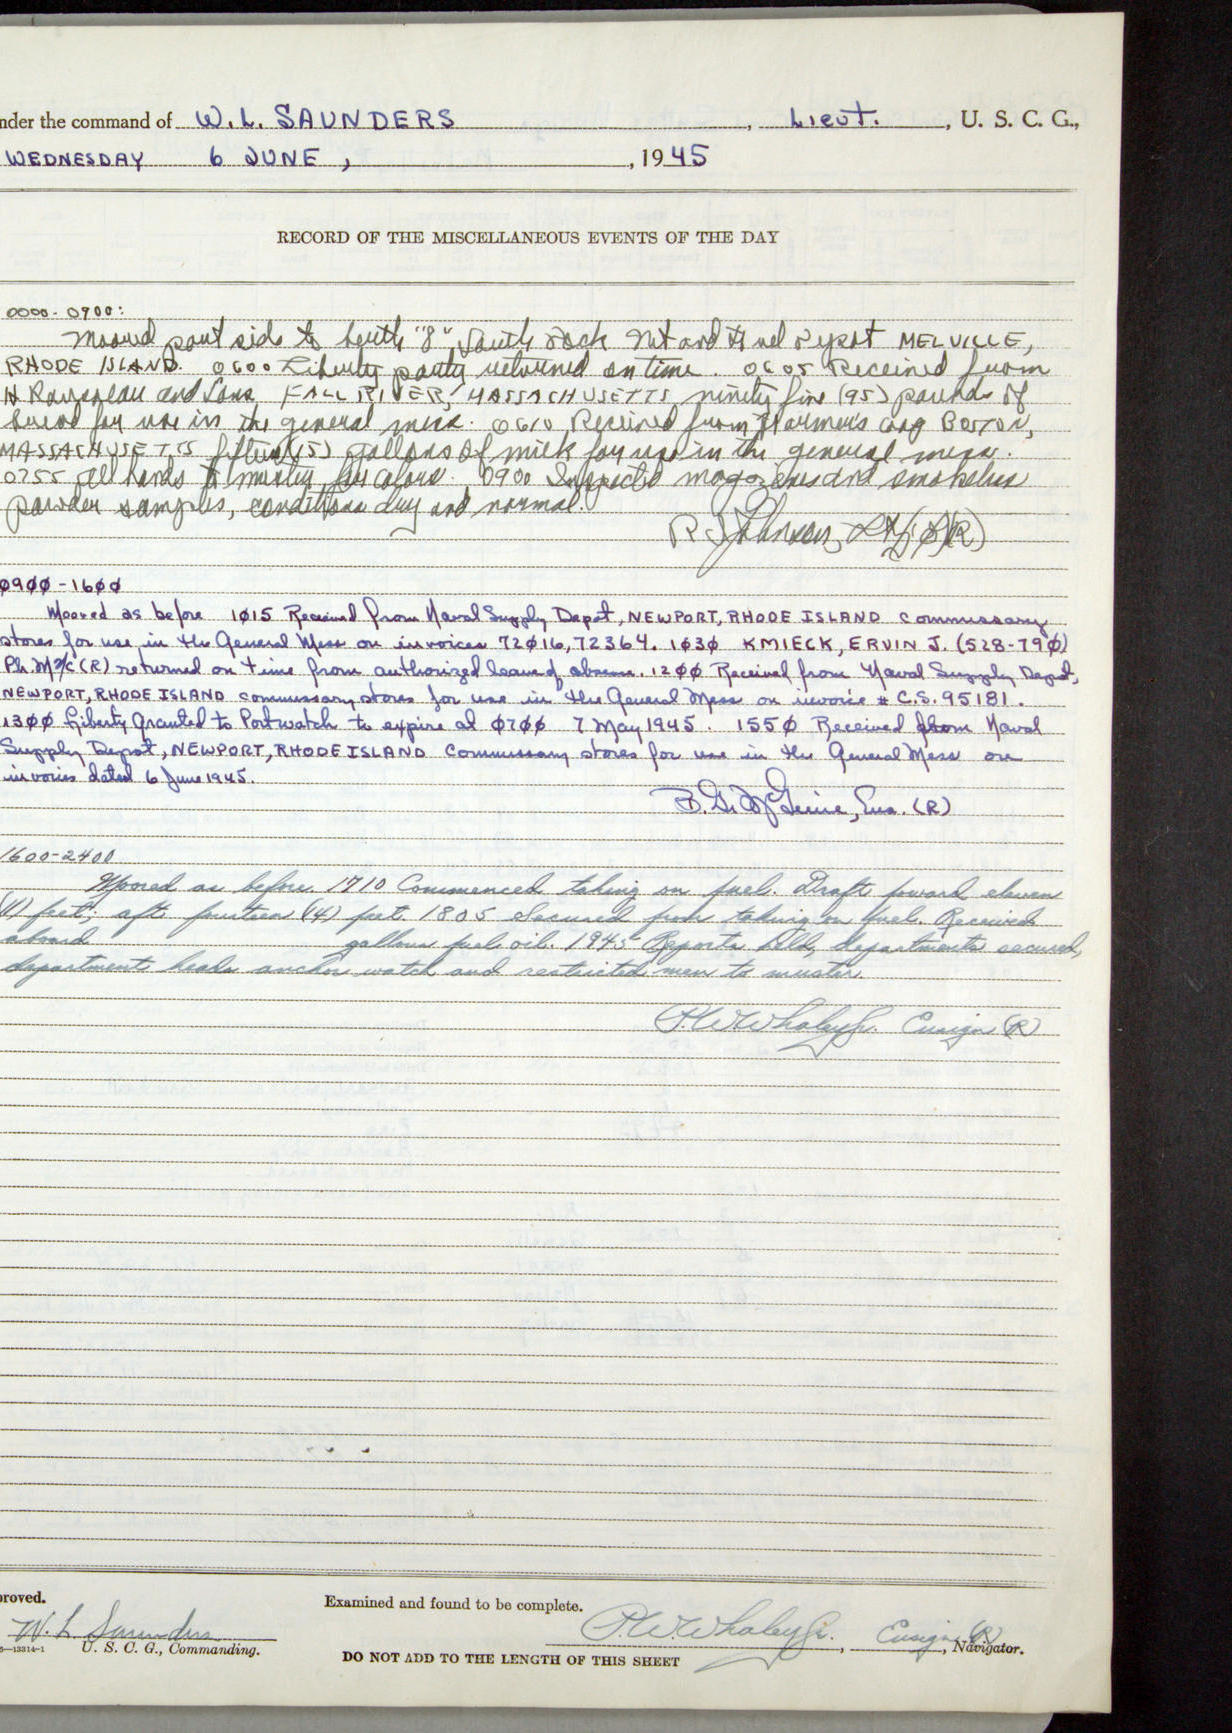 nder the command of W. L. SAUNDERS, Lieut., U. S. C. G.,
WEDNESDAY 6 JUNE, , 1945
RECORD OF THE MISCELLANEOUS EVENTS OF THE DAY
0000-0900:
Moored port side to berth "8" South dock Net and Fuel Depot MELVILLE,
RHODE ISLAND. 0600 Liberty party returned on time. 0605 Received from
and Sons, FALL RIVER, MASSACHUSETTS ninety five (95) pounds of
bread for use in the general mess. 0610 Received from BOSTON,
MASSACHUSETTS fifteen (15) gallons of milk for use in the general mess.
0755 all hands to muster for colors. 0900 Inspected magazines and smokeless
powder samples, conditions dry and normal.
R J Johnson, Lt(jg)(R)
09ØØ-16ØØ
Moored as before 1Ø15 Received from Naval Supply Depot, NEWPORT, RHODE ISLAND commissary
stores for use in the General Mess on invoices 72Ø16, 72364. 1Ø3Ø KMIECK, ERVIN J. (528-79Ø)
Ph.M (R) returned on time from authorized leave of absence. 12ØØ Received from Naval Supply Depot,
NEWPORT, RHODE ISLAND commissary stores for use in the General Mess on invoice # C.S. 95181.
13ØØ Liberty granted to Port watch to expire at Ø7ØØ 7 May 1945. 155Ø Received from Naval
Supply Depot, NEWPORT, RHODE ISLAND commissary stores for use in the General Mess on
invoices dated 6 June 1945.
Ens. (R)
1600-2400
Moored as before. 1710 Commenced taking on fuel. Draft foward eleven
(11) feet; aft fourteen (14) feet. 1805 Secured from taking on fuel. Received
aboard gallons fuel oil. 1945 Reports held, departments secured,
department heads anchor watch and restricted men to muster.
P.W. Whaley Jr. Ensign (R)
proved. Examined and found to be complete.
W. L. Saunders P.W. Whaley Jr., Ensign (R), Navigator.
6—13314-1 U. S. C. G., Commanding.
DO NOT ADD TO THE LENGTH OF THIS SHEET